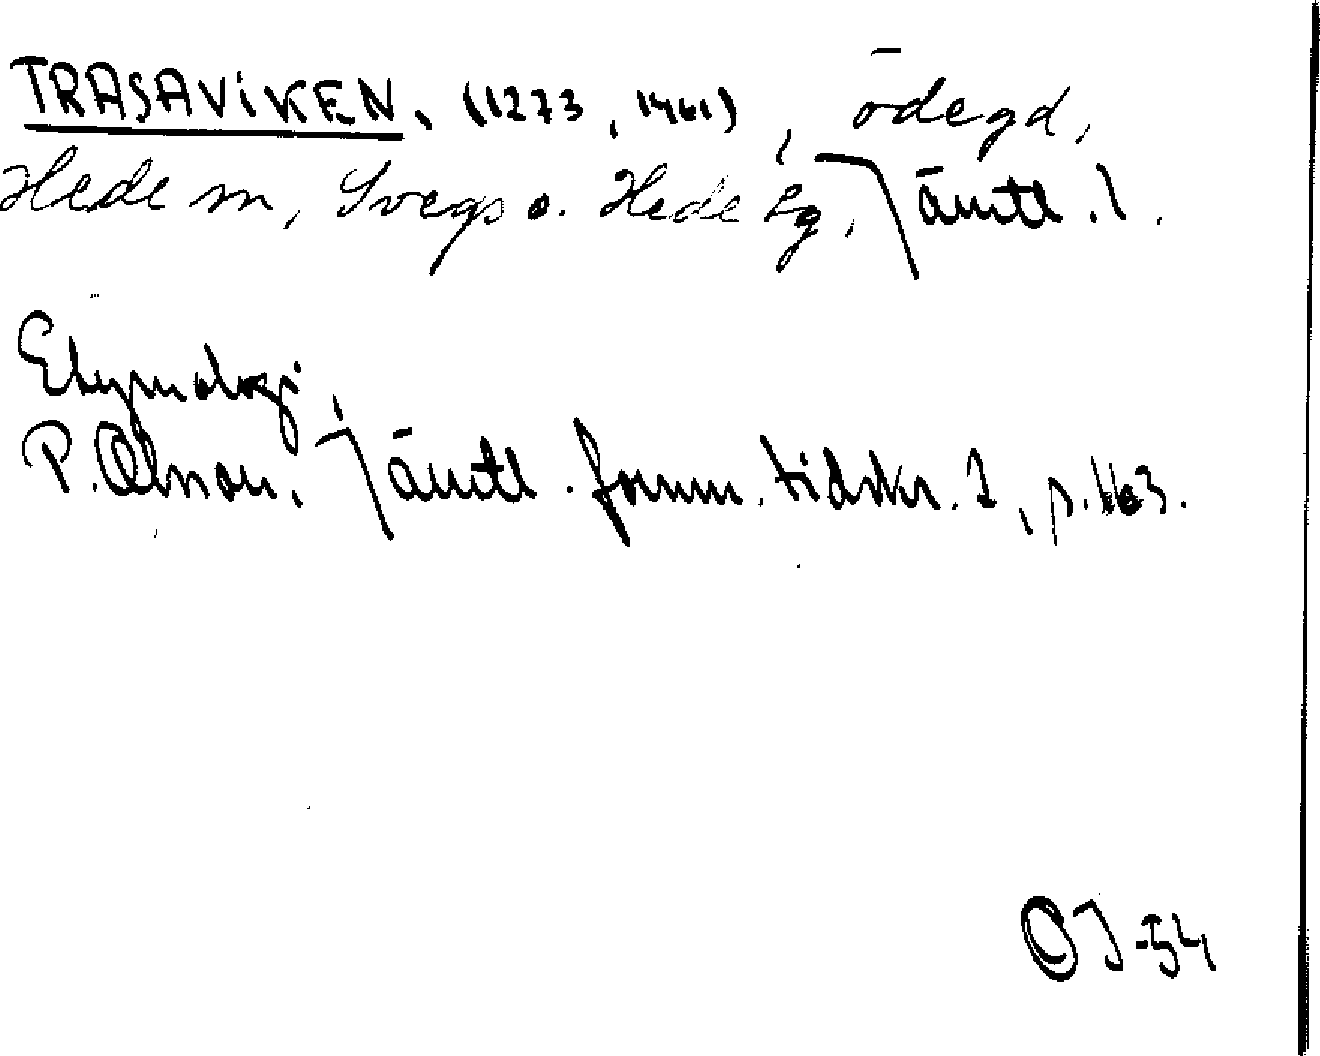 TRASAVIKEN, (1273, 1461), ödegd,
Hede sn, Svegs o. Hede tg, Jämtl. l.
Etymologi
P. Olsson, Jämtl. fornm. tidskr. 1, s. 163.
OJ-54